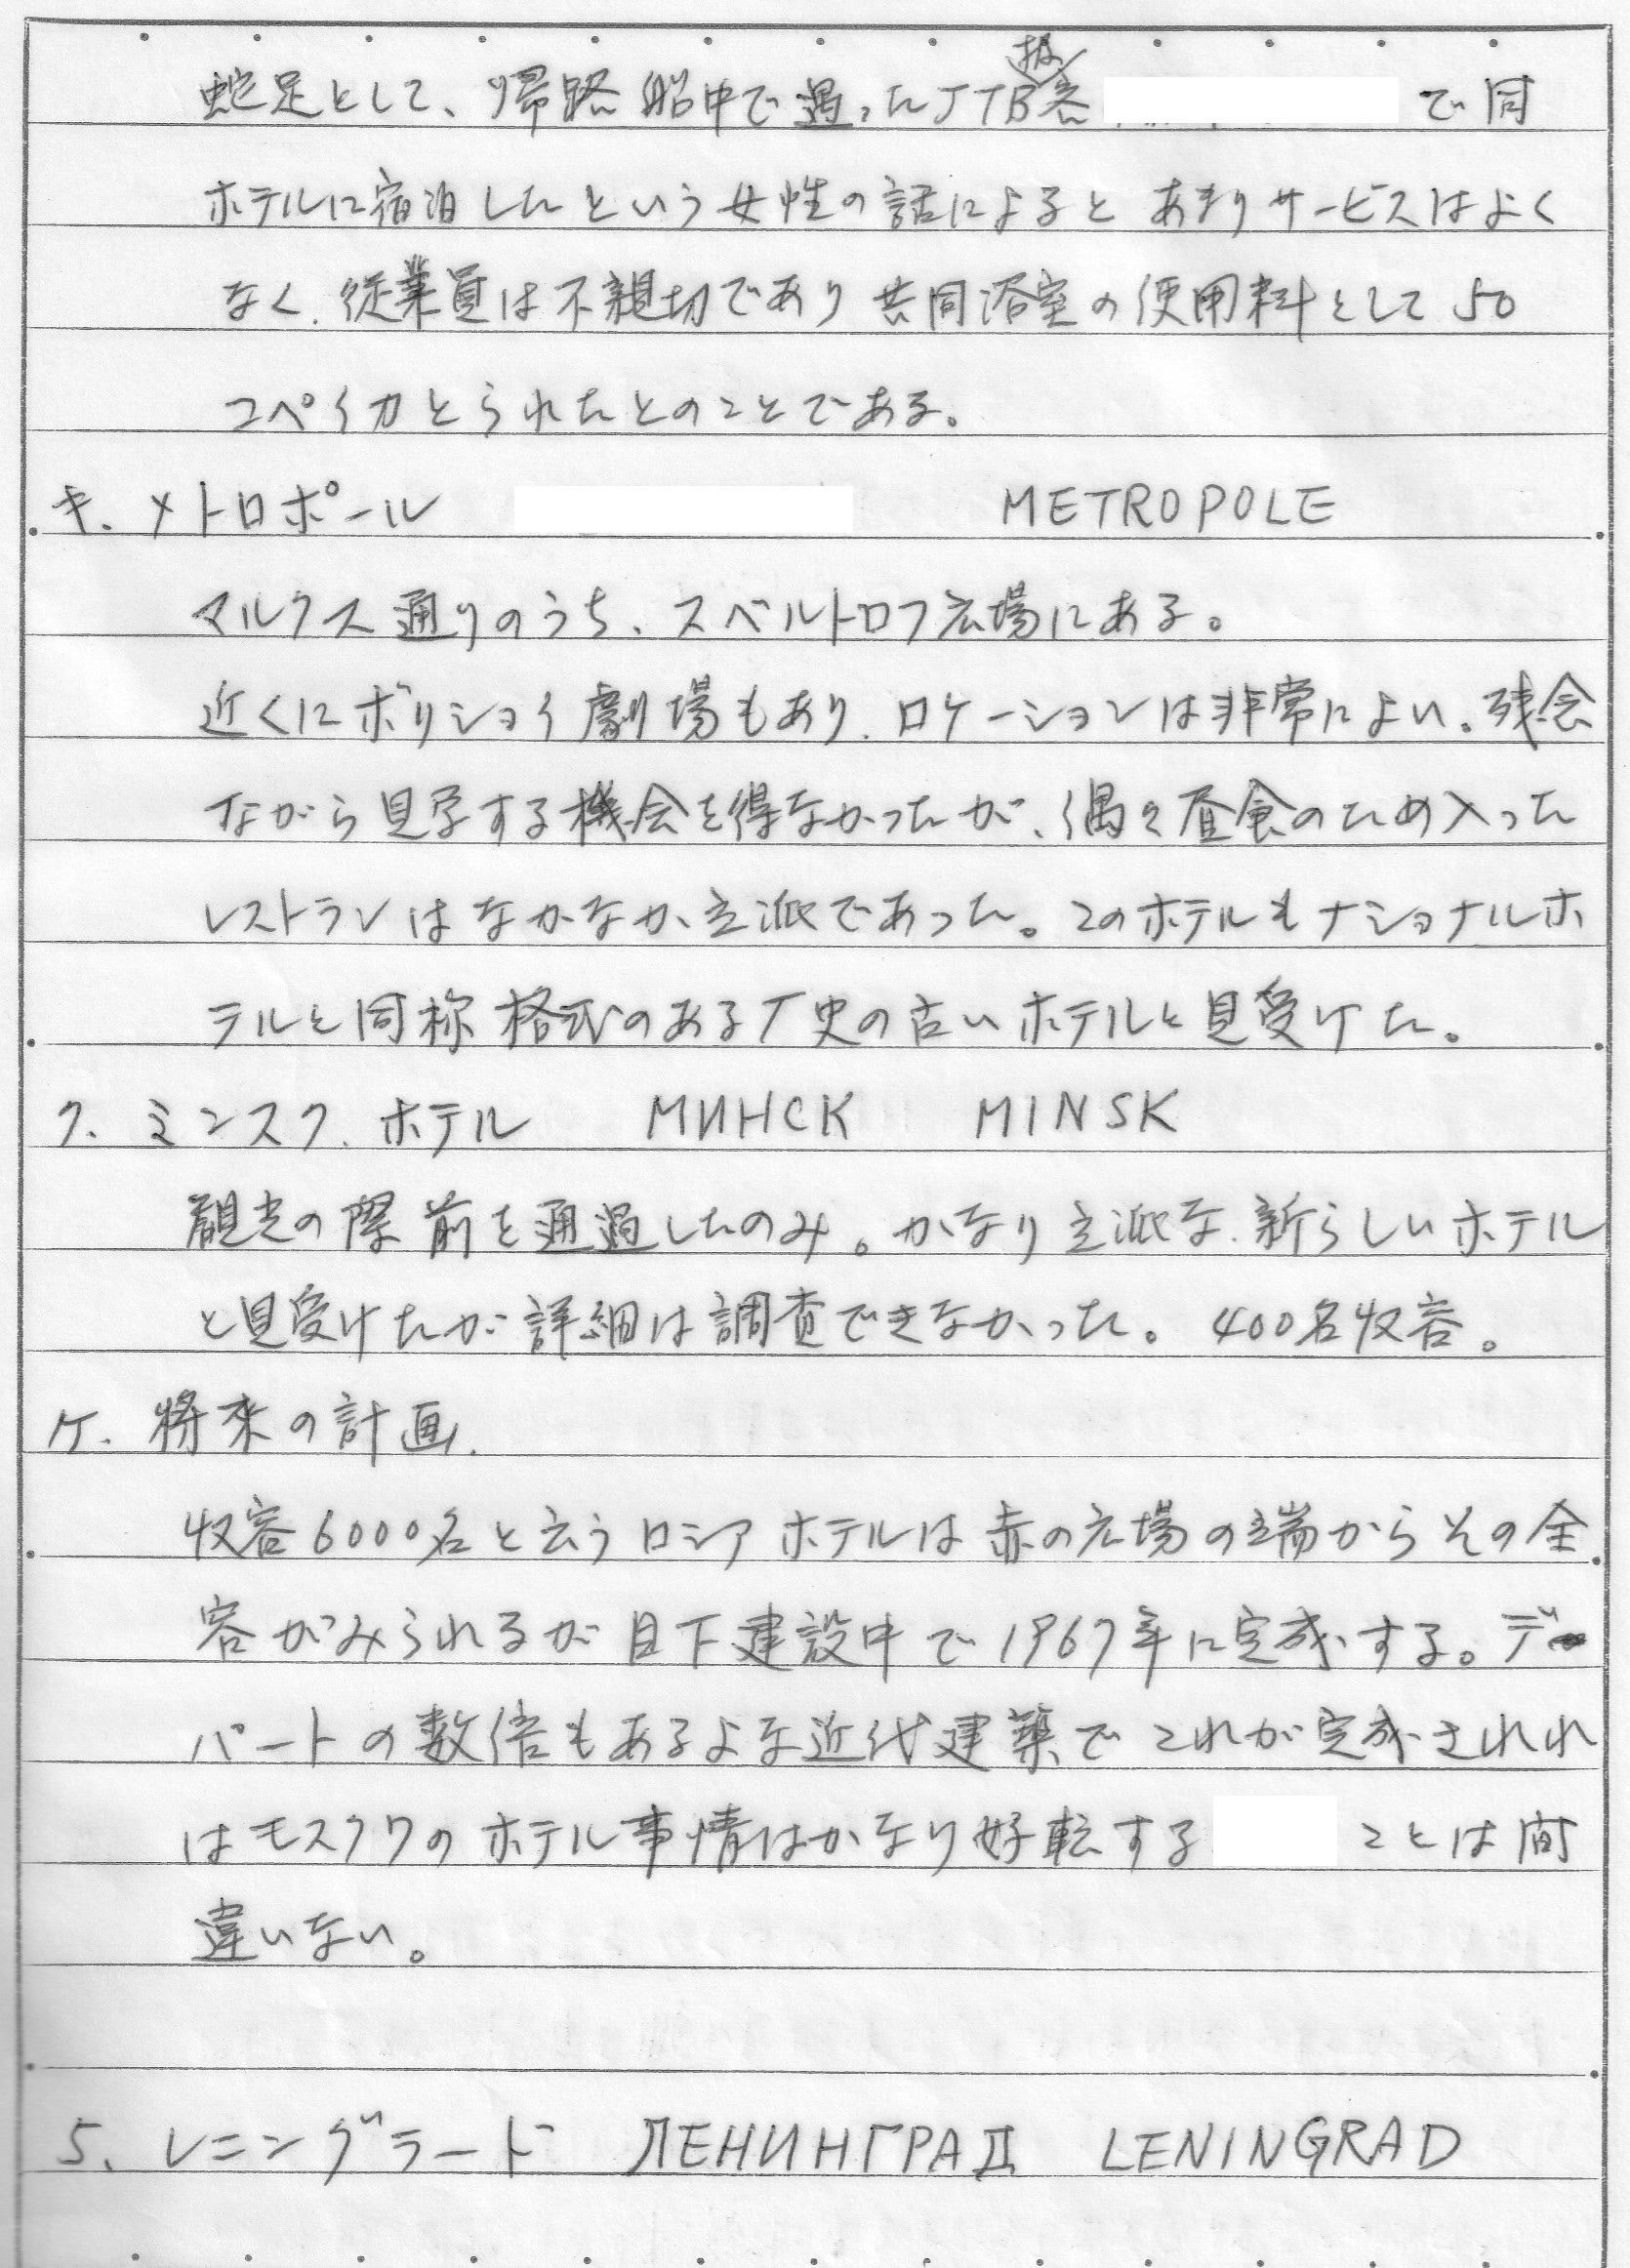 蛇足として、帰路船中で遇ったJTB扱客 で同
ホテルに宿泊したという女性の話によると あまりサービスはよく
なく、従業員は不親切であり共同浴室の使用料として50
コペイカとられたとのことである。
キ. メトロポール METROPOLE
マルクス通りのうち、スベルトロフ広場にある。
近くにボリショイ劇場もあり、ロケーションは非常によい。残念
ながら見学する機会を得なかったが、偶々昼食のため入った
レストランはなかなか立派であった。このホテルもナショナルホ
テルと同称格式のある厂史の古いホテルと見受けた。
ク. ミンスク.ホテル МИНСК MINSK
観光の際前を通過したのみ。かなり立派な、新らしいホテル
と見受けたが詳細は調査できなかった。400名収容。
ケ. 将来の計画.
収容6000名と云うロシアホテルは赤の広場の端からその全
容がみられるが目下建設中で1967年に完成する。デ
パートの数倍もあるよな近代建築でこれが完成されれ
はモスクワのホテル事情はかなり好転する ことは間
違いない。
5. レニングラード ЛЕНИНГРАД LENINGRAD